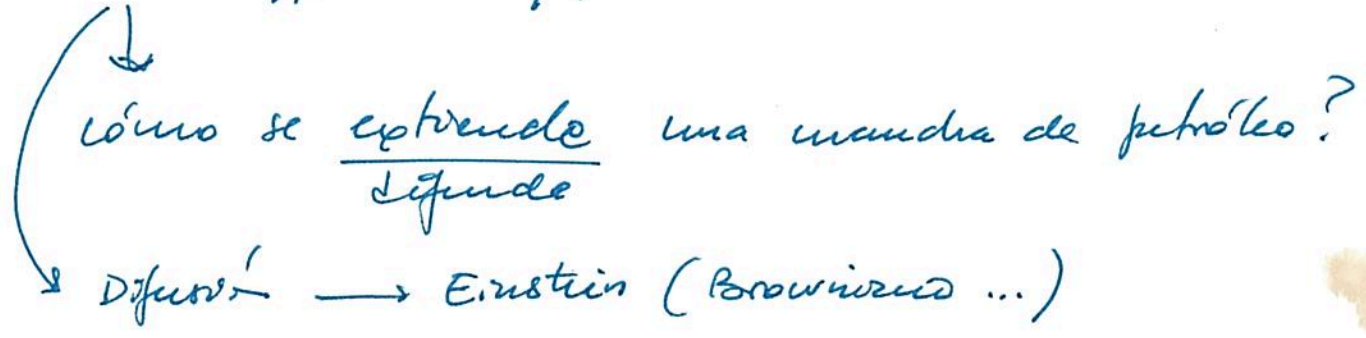 cómo se extiende una mancha de petróleo?
difunde
Difusión → Einstein (Browniano ...)